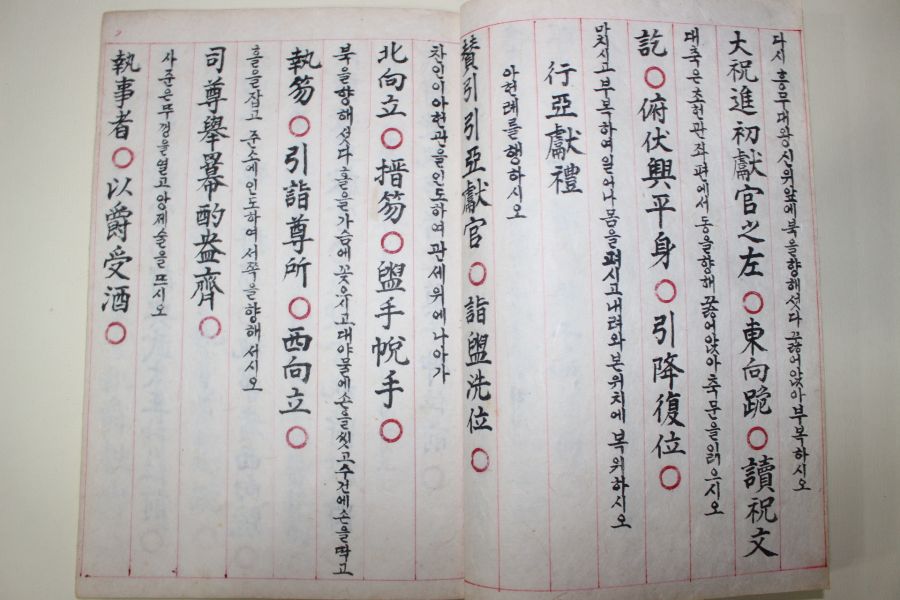 다시 흥무대왕 신위앞에 북을향해섯다 꿇어앉아 부복하시오
大祝進初獻官之左○東向跪○讀祝文
대축은초헌관좌편에서 동을향해 꿇어앉아축문을읽으시오
訖○俯伏興平身○引降復位○
마치시고부복하여일어나몸을펴시고내려와본위치에 복위하시오
行亞獻禮
아헌례를행하시오
贊引引亞獻官○詣盥洗位○
찬인이아헌관을인도하여 관세위에나아가
北向立○搢笏○盥手帨手○
북을향해섯다 홀을가슴에 꽂으시고대야물에손을씻고수건에손을딱고
執笏○引詣尊所○西向立○
홀을잡고 준소에인도하여서쪽을향해서시오
司尊擧冪酌盎齊○
사준은뚜껑을열고앙제술을뜨시오
執事者○以爵受酒○